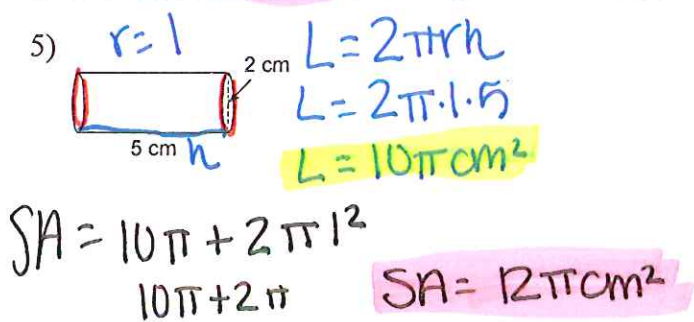 5) r = 1
2 cm
L = 2πrh
L = 2π·1·5
5 cm h
L = 10π cm²
SA = 10π + 2π1²
10π + 2π
SA = 12π cm²